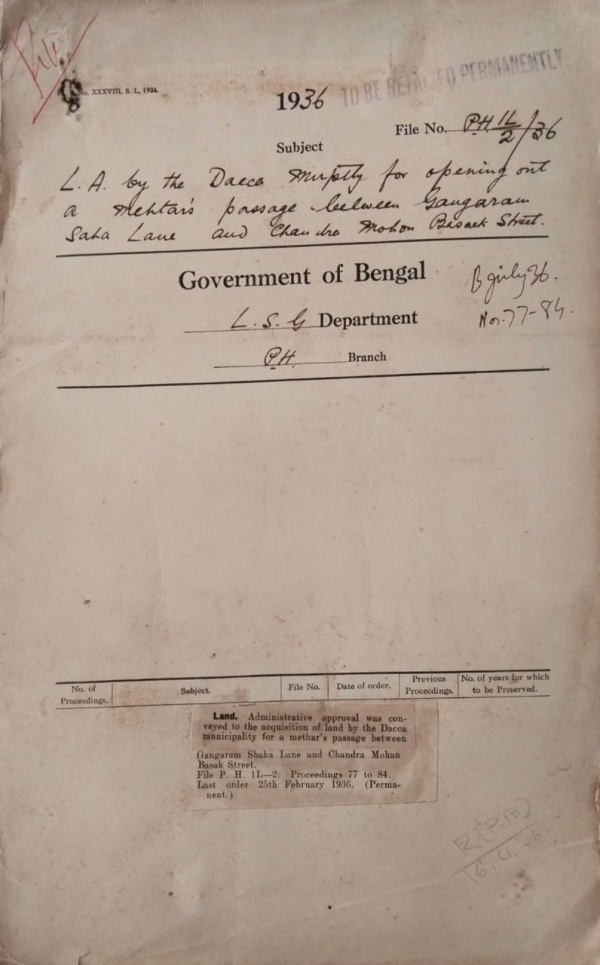 No. XXXVIII, S. I., 1924.
TO BE RETAINED PERMANENTLY
1936
File No. PH 1L/2/36
Subject
L. A. by the Dacca Muptly for opening out
a mehtar's passage between Gangaram
Saha Lane and Chandra Mohon Basack Street.
Government of Bengal
B July 36.
L. S. G Department
Nos. 77-84.
PH Branch
No. of Proceedings. Subject. File No. Date of order. Previous Proceedings. No. of years for which to be Preserved.
Land. Administrative approval was con-
veyed to the acquisition of land by the Dacca
municipality for a methar's passage between
Gangaram Shaha Lane and Chandra Mohan
Basak Street.
File P. H. 1L—2. Proceedings 77 to 84.
Last order 25th February 1936. (Perma-
nent.)